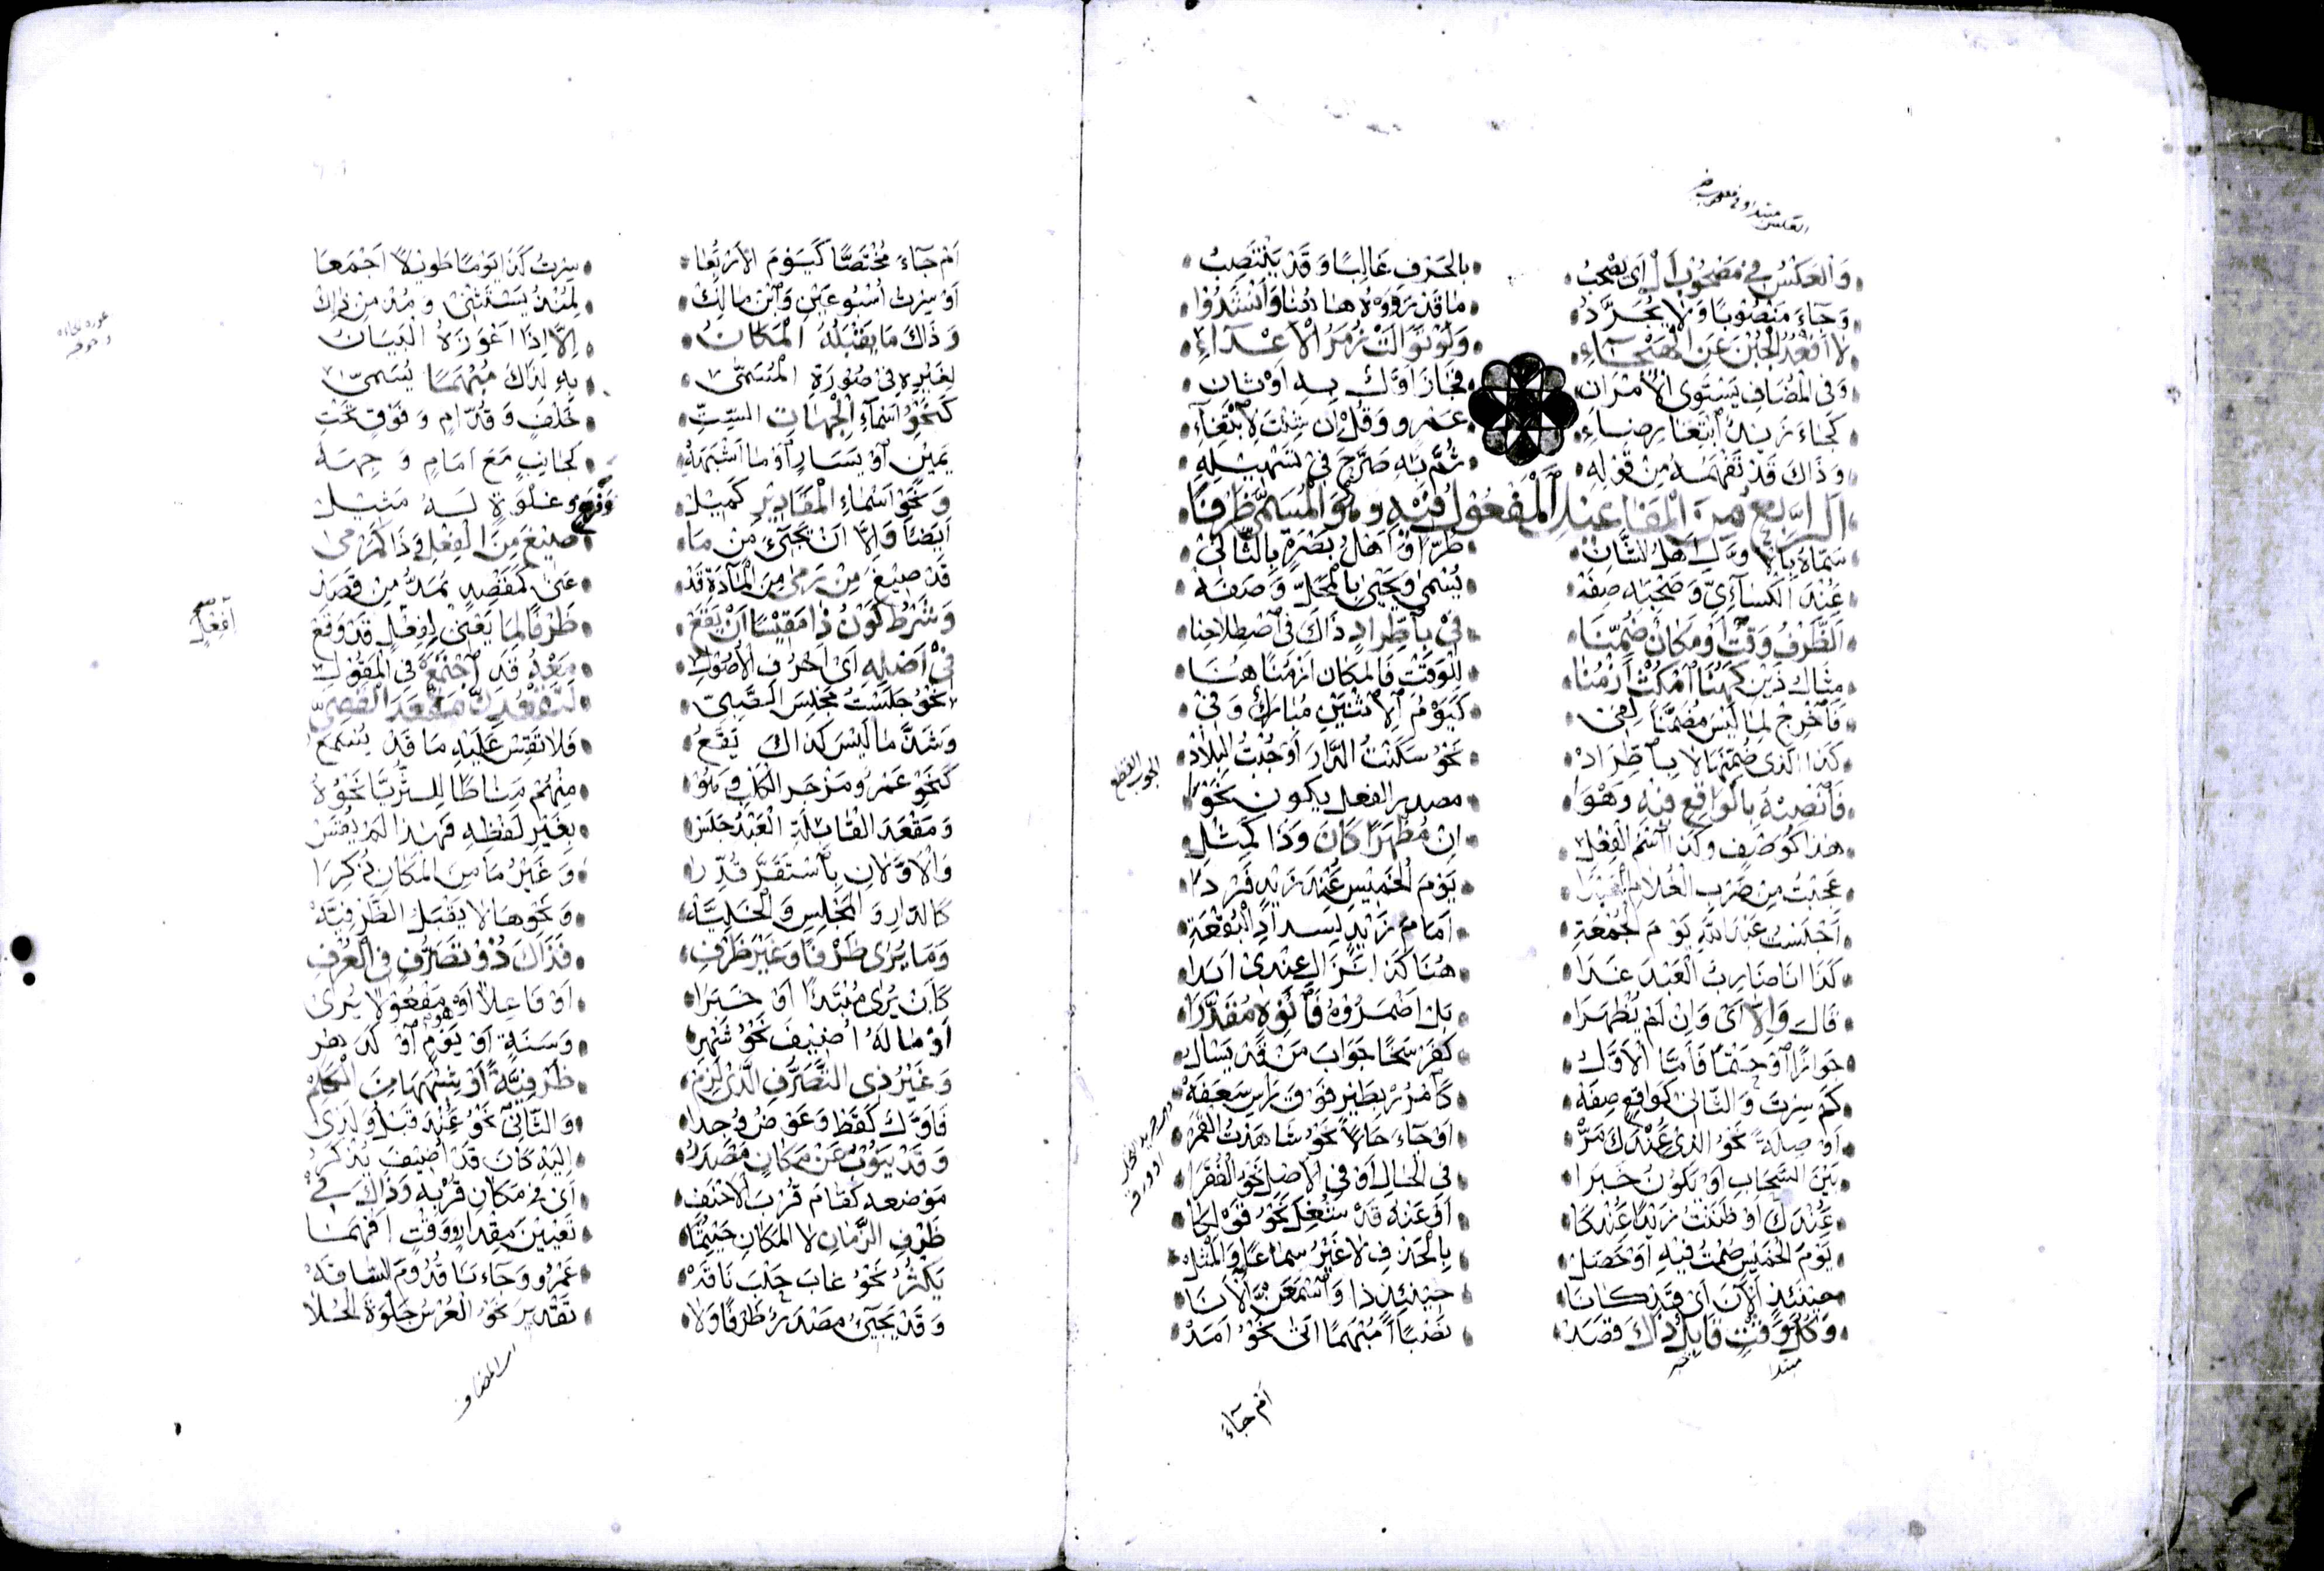 وَالعَكْسُ فِي مَصْحُوبِ اَلْ اَيْ يَصْحَبُ بِالحَرْفِ غَالِبًا وَقَدْ يَنْتَصِبُ
وَجَاءَ مَنْصُوبًا وَلَا يُجَرَّدُ مَا قَدْ رَوَوْهُ هَاهُنَا وَاَنْشَدُوا
لَا اَقْعُدُ الْجُبْنَ عَنِ الْهَيْجَاءِ وَلَوْ تَوَالَتْ زُمَرُ الْاَعْدَاءِ
وَفِي الْمُضَافِ يَسْتَوِي الْاَمْرَانِ فَجَازَ اَوَّلٌ بِهِ اَوْ ثَانِ
كَجَاءَ زَيْدٌ اِبْتِغَا رِضَاءِ عَمْرٍو وَقُلْ اِنْ شِئْتَ لِابْتِغَاءِ
وَذَاكَ قَدْ تَفْهَمُهُ مِنْ قَوْلِهِ ثُمَّ بِهِ صَرَّحَ فِي تَسْهِيلِهِ
اَلرَّابِعُ مِنَ الْمَفَاعِيلِ الْمَفْعُولُ فِيهِ وَهُوَ الْمُسَمَّى ظَرْفًا
سَمَّاهُ بِالْاَوَّلِ اَهْلُ الشَّانِ طُرًّا وَاَهْلُ بَصْرَةٍ بِالثَّانِي
عِنْدَ الْكِسَائِيِّ وَصَحْبِهِ صِفَهْ يُسْمَى وَيَحْيَى بِالْمَحَلِّ وَصَفَهْ
اَلظَّرْفُ وَقْتٌ اَوْ مَكَانٌ ضُمِّنَا فِي بِاطِّرَادٍ ذَاكَ فِي اصْطِلَاحِنَا
مِثَالُ ذَيْنِ كَهُنَا امْكُثْ اَزْمُنَا لِلْوَقْتِ فَالْمَكَانِ اَزْمُنًا هُنَا
فَاَخْرِجْ لِمَا لَيْسَ مُضَمَّنًا لِفِي كَيَوْمُ الِاثْنَيْنِ مُبَارَكٌ وَفِي
كَذَا الَّذِي ضُمِّنَهَا لَا بِاطِّرَادْ نَحْوُ سَكَنْتُ الدَّارَ اَوْ جُبْتُ البِلَادْ
فَانْصِبْهُ بِالْوَاقِعِ فِيهِ وَهْوَ مصدر الفعل يكون نَحْوُ
هَذَا كَوَصْفٍ وَكَذَا اسْمُ الْفِعْلِ اِنْ مُظْهَرًا كَانَ وَذَا كَمِثْلِ
عَجِبْتُ مِنْ ضَرْبِ الْغُلَامِ يَوْمَ الْخَمِيسِ عِنْدَ زَيْدٍ فَرْدَا
اَجْلَسْتُ عَبْدَ اللهِ يَوْمَ الْجُمْعَةِ اَمَامَ زَيْدٍ الْبُقْعَةِ
كَذَا اَنَا ضَارِبُ الْعَبْدَ غَدَا هُنَا كَذَا نَزَالِ عِنْدِي اَبَدَا
قَالَ وَاِلَّا اَيْ وَاِنْ لَمْ يُظْهَرَا بَلْ اَضْمَرُوهُ فَانْوِهِ مُقَدَّرَا
جَوَازًا اَوْ حَتْمًا فَاَمَّا الْاَوَّلُ كَفَرْسَخًا جَوَابَ مَنْ قَدْ يَسْاَلُ
كَمْ سِرْتَ وَالثَّانِي كَوَاقِعٍ صِفَهْ كَامْرُرْ بِطَيْرٍ فَوْقَ رَاسِ سَعَفَهْ
اَوْ صِلَةً نَحْوُ الَّذِي عِنْدَكَ مَرّْ اَوْ جَاءَ حَالًا نَحْوُ شَاهَدْتُ الْقَمَرْ
بَيْنَ السَّحَابِ اَوْ يَكُونُ خَبَرَا فِي الْحَالِ اَوْ فِي الْاَصْلِ نَحْوُ الْفُقَرَا
عِنْدَكَ اَوْ ظَنَنْتُ زَيْدًا عِنْدَكَا اَوْ عَنْهُ قَدْ شُغِلَ نَحْوُ قَوْلِكَا
يَوْمَ الْخَمِيسِ صُمْتُ فِيهِ اَوْ حَصَلْ بِالْحَذْفِ لَا غَيْرُ سَمَاعًا وَالْمَثَلْ
حِينَئِذٍ الْآنَ اَيْ قَدْ كَانَا حِينَئِذٍ ذَا وَاسْمَعَنَّ الْآنَا
وَكُلُّ وَقْتٍ قَابِلٌ ذَاكَ قُصِدْ نَصْبًا اَمُبْهَمًا اَتَى نَحْوُ اَمَدْ
اَمْ جَاءَ
اَمْ جَاءَ مُخْتَصًّا كَيَوْمَ الْاَرْبِعَا سِرْتُ كَذَا يَوْمًا طَوِيلًا اَجْمَعَا
اَوْ سِرْتُ اُسْبُوعَيْنِ وَابْنُ مَالِكْ لِمُنْذُ يَسْتَثْنِي وَمُذْ مِنْ ذٰلِكْ
وَذَاكَ مَا يَقْبَلُهُ الْمَكَانُ اِلَّا اِذَا اَعْوَزَهُ الْبَيَانُ
لِغَيْرِهِ فِي صُورَةِ الْمُسَمَّى بِهِ لِذَاكَ مُبْهَمًا يُسَمَّى
كَنَحْوِ اَسْمَاءِ الْجِهَاتِ السِّتِّ خَلْفٍ وَقُدَّامٍ وَفَوْقٍ تَحْتِ
يَمِينٍ اَوْ يَسَارٍ اَوْ مَا اَشْبَهَهْ كَجَانِبٍ مَعَ اَمَامٍ وَجِهَهْ
وَنَحْوِ اَسْمَاءِ الْمَقَادِيرِ كَمِيلْ وَغَلْوَةٍ لَهُ مَثِيلْ
اَيْضًا وَاِلَّا اَنْ يَجِيءَ مِنْ مَا صِيغَ مِنَ الْفِعْلِ وَذَا كَمَرْمَى
قَدْ صِيغَ مِنْ رَمَى مِنَ الْمَادَةِ قَدْ عَنَى كَمَقْصِدٍ يُمَدُّ مِنْ قَصَدْ
وَشَرْطُ كَوْنِ ذَا مَقِيسًا اَنْ يَقَعْ ظَرْفًا لِمَا يَعْنِي لِفِعْلٍ قَدْ وَقَعْ
فِي اَصْلِهِ اَيْ اَحْرُفِ الْاُصُولِ مَعْهُ قَدِ اجْتَمَعَ فِي الْمَقُولِ
نَحْوُ جَلَسْتُ مَجْلِسَ الصَّبِيِّ مَقْعَدَ الْقَصِيِّ
وَشَذَّ مَا لَيْسَ كَذَاكَ يَقَعُ فَلَا تَقِسْ عَلَيْهِ مَا قَدْ يُسْمَعُ
كَنَحْوِ عَمْرٌو مَزْجَرَ الْكَلْبِ وَهُوْ مِنْهُمْ مَنَاطًا لِلثُّرَيَّا نَحْوُهُ
وَمَقْعَدَ الْقَابِلَةِ الْعَبْدُ جَلَسْ بِغَيْرِ لَفْظِهِ فَهٰذَا لَمْ يُقَسْ
وَالْاَوَّلَانِ بِاسْتَقَرَّ قُدِّرَا وَغَيْرُ مَا مِنَ الْمَكَانِ ذُكِرَا
كَالدَّارِ وَالْمَجْلِسِ وَنَحْوِهَا لَا يَقْبَلُ الظَّرْفِيَّهْ
وَمَا يُرَى ظَرْفًا وَغَيْرَ ظَرْفِ فَذَاكَ ذُو تَصَرُّفٍ فِي الْعُرْفِ
كَاَنْ يُرَى مُبْتَدَاً اَوْ خَبَرَا اَوْ فَاعِلًا اَوْ مَفْعُولًا يُرَى
اَوْ مَا لَهُ اُضِيفَ نَحْوُ شَهْرِ وَسَنَةٍ اَوْ يَوْمٍ اَوْ
وَغَيْرُ ذِي التَّصَرُّفِ الَّذِي لَزِمْ ظَرْفِيَّةً اَوْ شِبْهَهَا مِنَ الْكَلِمْ
فَاَوَّلٌ كَقَطُّ وَعَوْضُ وُجِدَا وَالثَّانِي نَحْوُ عِنْدَ قَبْلُ وَلَدَى
وَقَدْ يَنُوبُ عَنْ مَكَانٍ مَصْدَرُ اِلَيْهِ كَانَ قَدْ اُضِيفَ يُذْكَرُ
مَوْضِعَهُ كَقَامَ قُرْبَ الْاَحْنَفِ اَيْ فِي مَكَانِ قُرْبِهِ وَذَاكَ فِي
ظَرْفِ الزَّمَانِ لَا الْمَكَانِ حَيْثُمَا تَعْيِينَ مِقْدَارٍ وَوَقْتٍ اَفْهَمَا
يَكْثُرُ نَحْوُ غَابَ حَلْبَ نَاقَهْ عَمْرٌو وَجَاءَنَا قُدُومَ السَّاقَهْ
وَقَدْ يَجِيءُ مَصْدَرٌ ظَرْفًا وَلَا تَقْدِيرَ نَحْوُ الْعُرْسُ جَلْوَةَ الْحُلَا